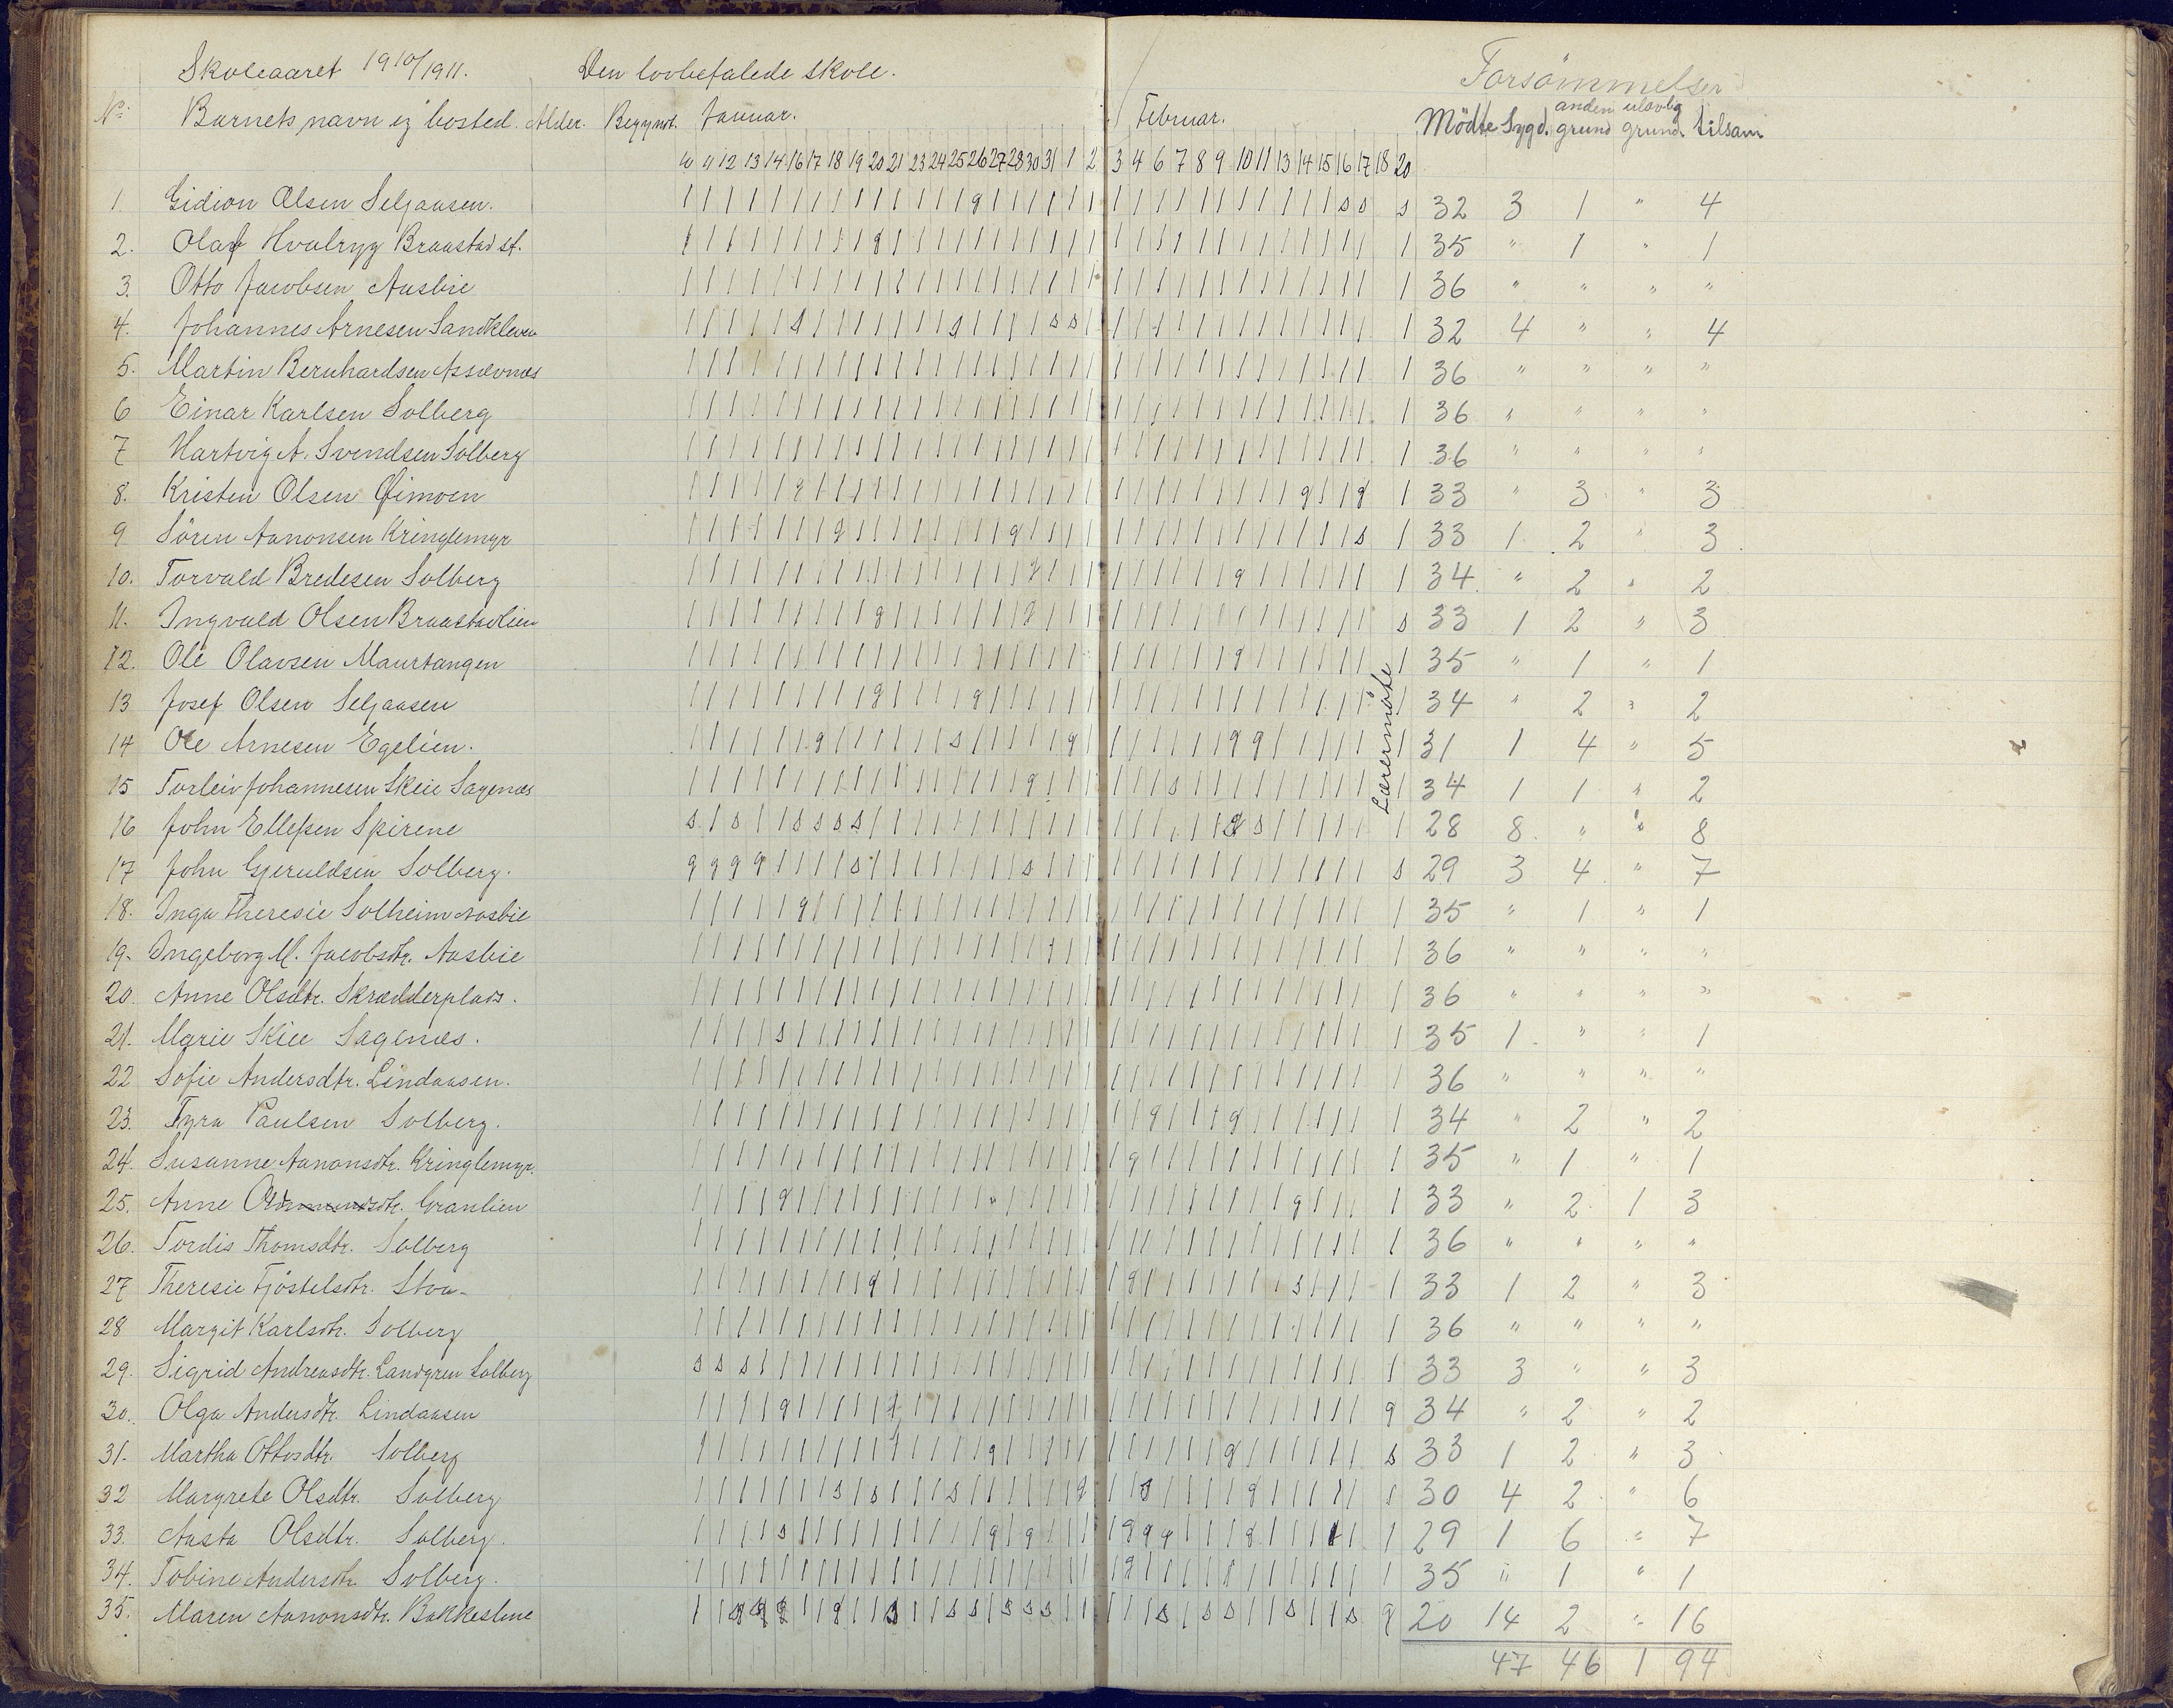 Skoleaaret 1910/1911. Den lovbefalede skole. Forsømmelser
No. Barnets navn og bosted. Alder. Begynt. Januar. Februar. Mödte Sygd. anden grund ulovlig grund. tilsam
10 11 12 13 14 16 17 18 19 20 21 23 24 25 26 27 28 30 31 1 2 3 4 6 7 8 9 10 11 13 14 15 16 17 18 20
1. Gidion Olsen Seljaasen. 32 3 1 " 4
2. Olaf Hvalryg Braastad st. 35 " 1 " 1
3. Otto Jacobsen Aasbie 36 " " " "
4. Johannes Arnesen Sandkleven 32 4 " " 4
5. Martin Bernhardsen Assævnæs 36 " " " "
6 Einar Karlsen Solberg 36 " " " "
7 Hartvig A. Svendsen Solberg 36 " " " "
8. Kristen Olsen Øimoen 33 " 3 " 3
9 Sören Aanonsen Kringlemyr 33 1 2 " 3
10. Torvald Bredesen Solberg 34 " 2 " 2
11. Ingvald Olsen Braastadlien 33 1 2 " 3
12. Ole Olavsen Maurtangen 35 " 1 " 1
13 Josef Olsen Seljaasen 34 " 2 " 2
14 Ole Arnesen Egelien. 31 1 4 " 5
15 Torleiv Johannesen Skeie Sagenæs 34 1 1 " 2
16 John Ellefsen Spirene 28 8 " " 8
17 John Gjeruldsen Solberg. 29 3 4 " 7
Lærermöte
18. Inga Theresie Solheim Aasbie 35 " 1 " 1
19. Ingeborg M. Jacobsdtr. Aasbie 36 " " " "
20. Anne Olsdtr. Skrædderplads. 36 " " " "
21. Marie Skiee Sagenæs. 35 1 " " 1
22 Sofie Andersdtr. Lindaasen. 36 " " " "
23. Tyra Paulsen Solberg. 34 " 2 " 2
24. Susanne Aanonsdtr. Kringlemyr. 35 " 1 " 1
25. Anne Granlien 33 " 2 1 3
26. Tordis Thomsdtr. Solberg 36 " " " "
27 Theresie Tjöstelsdtr. Stoa 33 1 2 " 3
28 Margit Karlsdtr. Solberg 36 " " " "
29. Sigrid Andreasdtr. Landgren Solberg 33 3 " " 3
30. Olga Andersdtr. Lindaasen 34 " 2 " 2
31. Martha Ottosdtr. Solberg 33 1 2 " 3
32 Margrete Olsdtr. Solberg 30 4 2 " 6
33. Aasta Olsdtr. Solberg. 29 1 6 " 7
34. Tobine Andersdtr. Solberg. 35 " 1 " 1
35. Maren Aanonsdtr. Bakkeslene 20 14 2 " 16
47 46 1 94